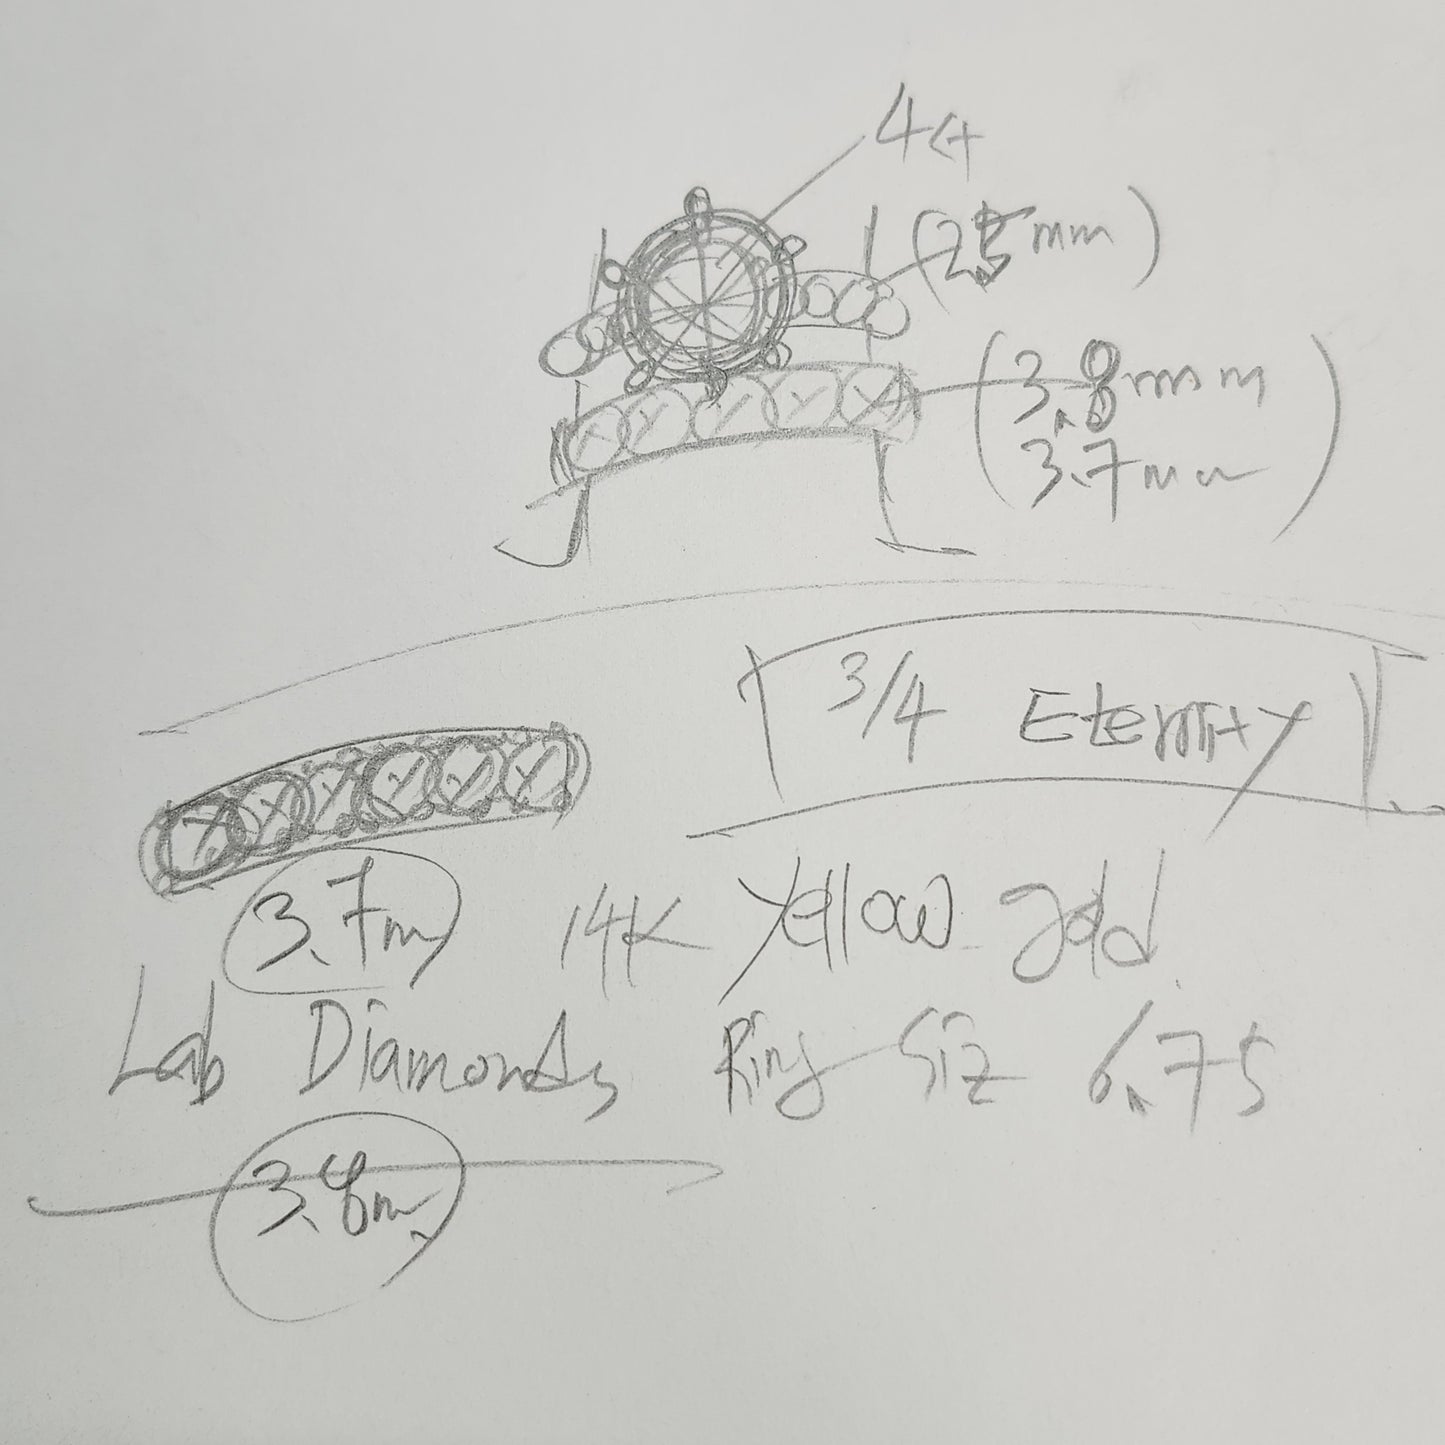 4ct
(2.5mm)
(3.8mm
3.7mm)
3/4 Eternity
3.7m
14K Yellow gold
Lab Diamonds Ring Siz 6.75
3.8m